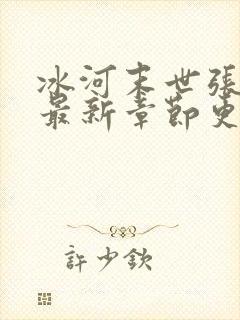 冰河末世張
最新章節更
許少欽